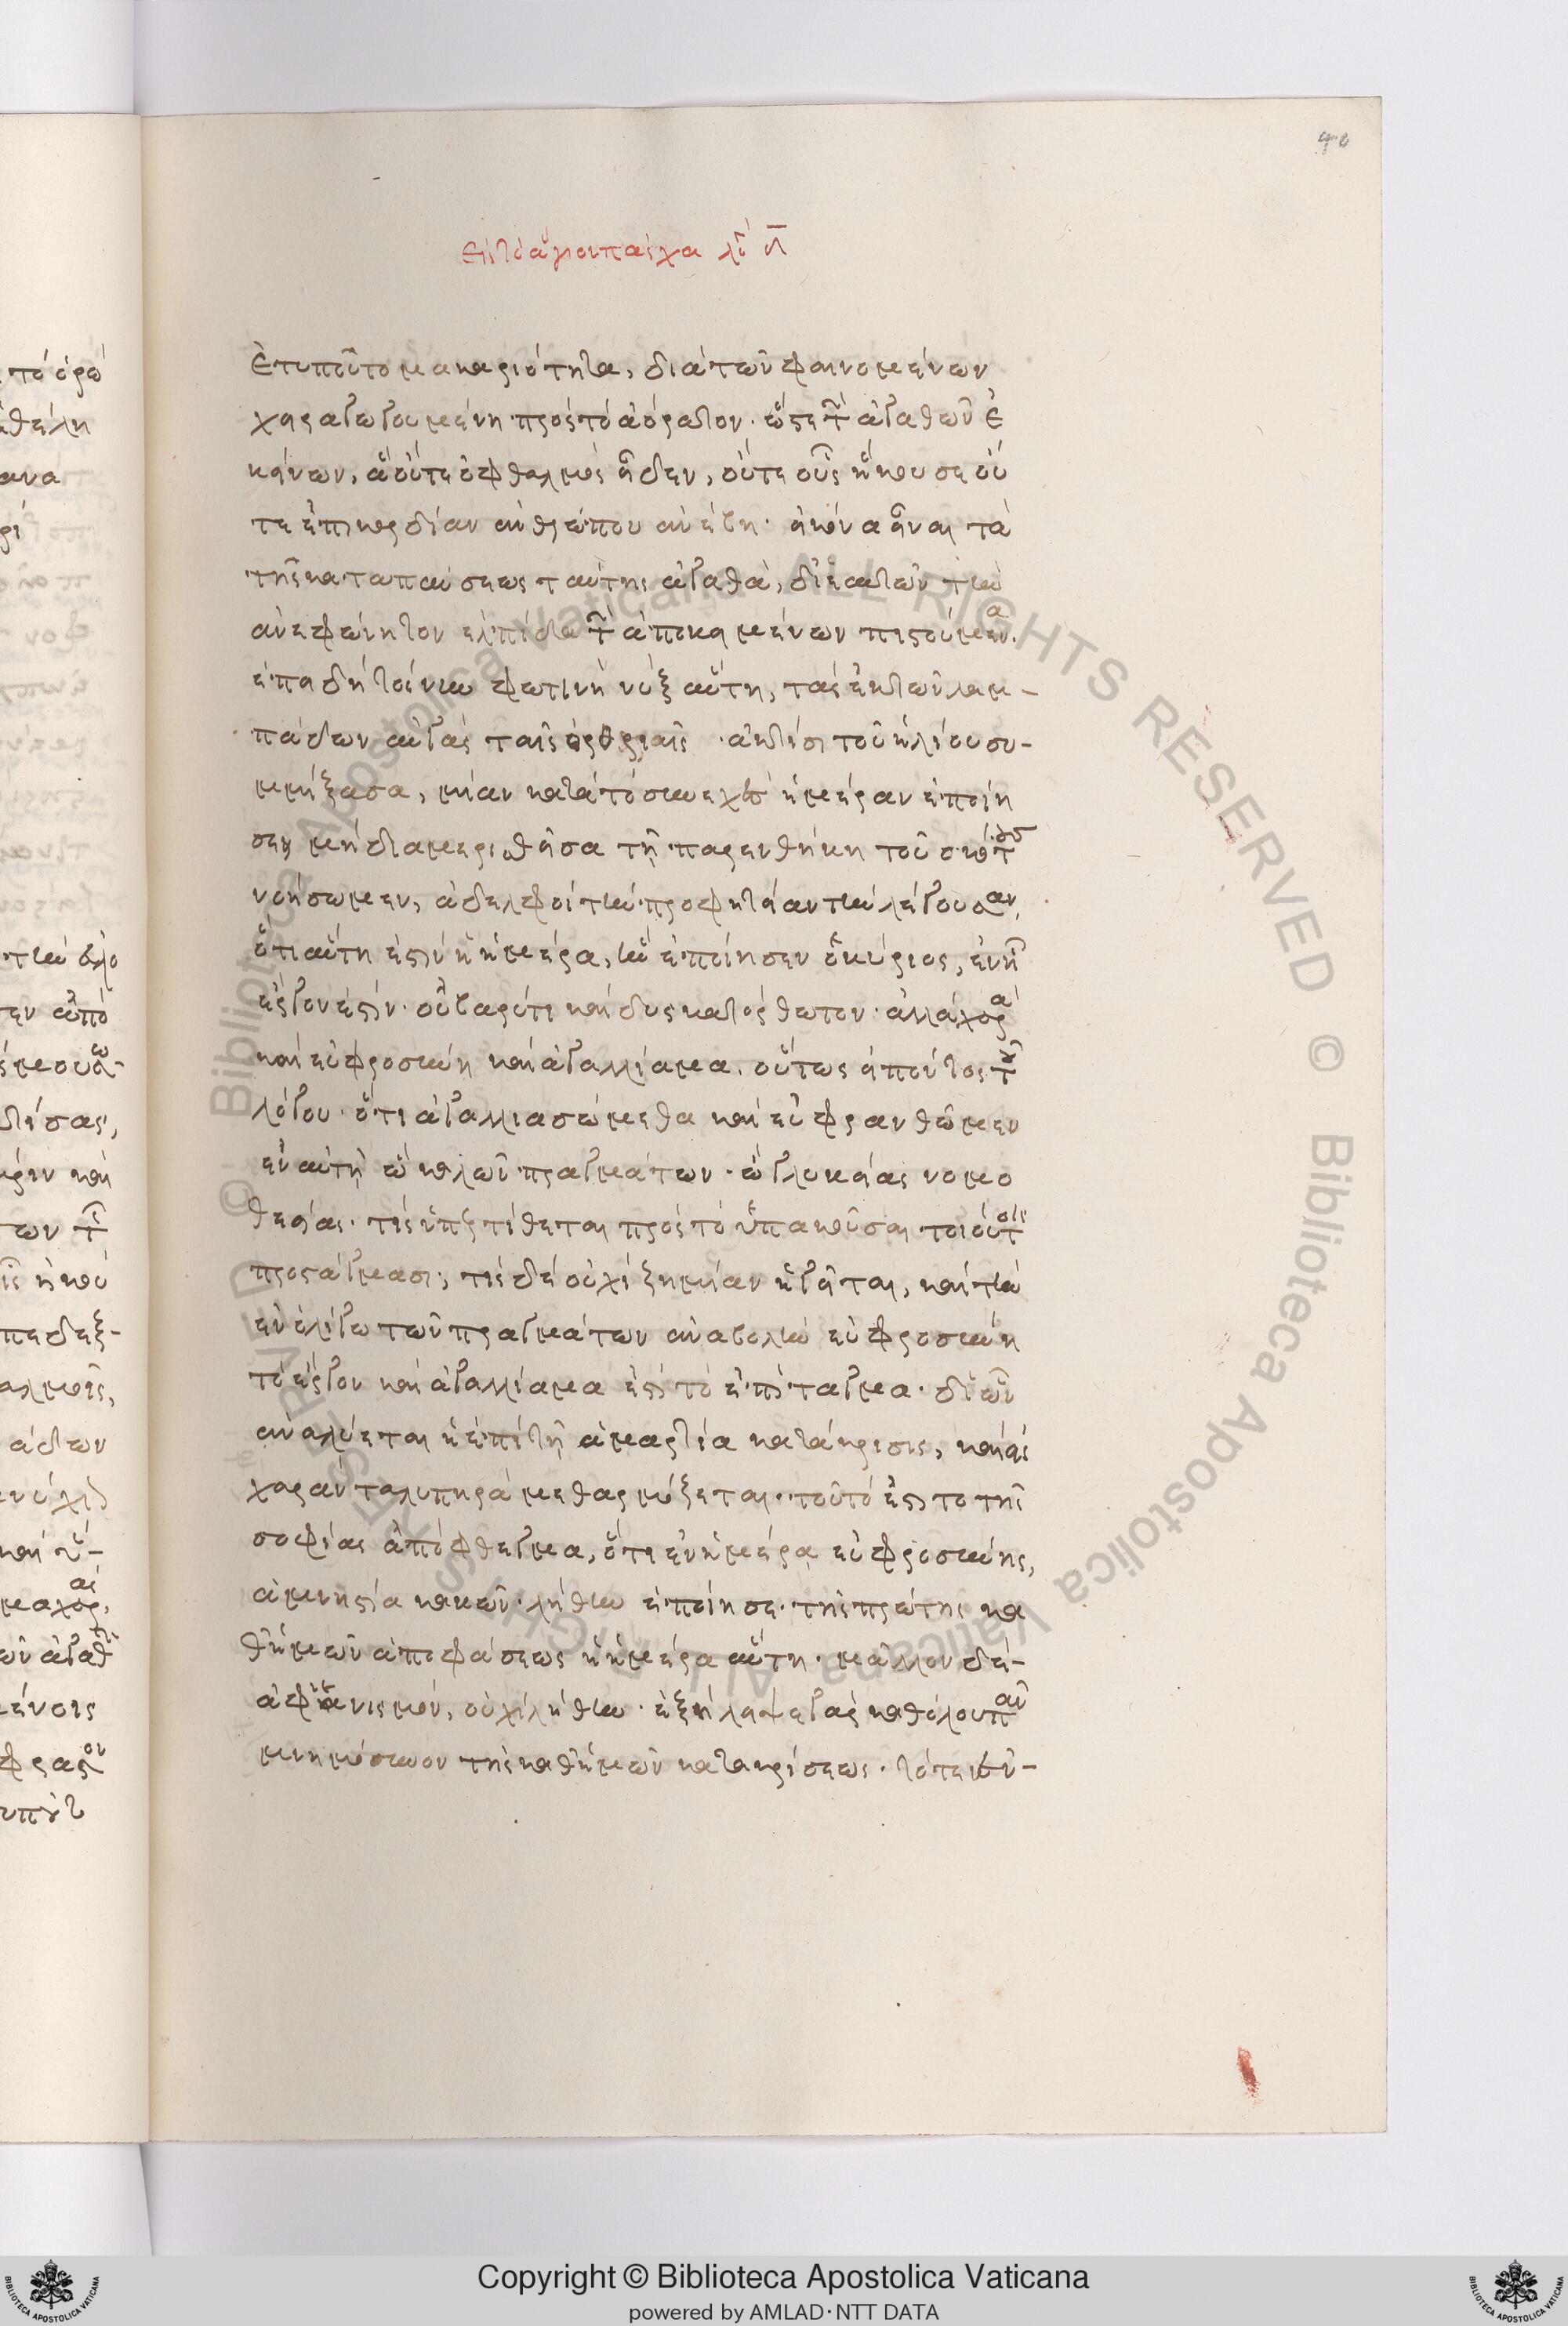 40
Εἰς τὸ ἅγιον πάσχα λό γ̅
Ἐτυποῦτο μακαριότητα, διὰ τῶν φαινομένων
χαραγωγουμένη πρὸς τὸ ἀόρατον. ὥστε τ̅ ἀγαθῶν ἐ
κείνων, ἃ οὔτε ὀφθαλμὸς εἶδεν, οὔτε οὖς ἤκουσε οὔ
τε ἐπὶ καρδίαν ἀνθρώπου ἀνέβη. εἰκόνα εἶναι τὰ
τῆς καταπαύσεως ταύτης ἀγαθὰ, δι' ἑαυτῶν τὴν
ἀνεκφώνητον ἐλπίδα τ̅ ἀποκειμένων πιστούμενα.
ἐπειδὴ τοίνυν φωτινὴ νὺξ αὕτη, τὰς ἐκ τῶν λαμ-
πάδων αὐγὰς ταῖς ὀρθριαῖς ἀκτίσι τοῦ ἡλίου συ-
μμήξασα, μίαν κατὰ τὸ συνεχὲς ἡμέραν ἐποίη
σεν μὴ διαμερισθεῖσα τῇ παρενθήκη τοῦ σκότους
νοήσωμεν, ἀδελφοὶ τὴν προφητείαν τὴν λέγουσαν,
ὅτι αὕτη ἐστὶν ἡ ἡμέρα, ἣν ἐποίησεν ὁ κύριος, ἐν ᾗ
ἔργον ἐστὶν. οὐ βαρύ τι καὶ δυσκατόρθωτον. ἀλλὰ χαρὰ
καὶ εὐφροσύνη καὶ ἀγαλλίαμα. οὕτως εἰπόντος τοῦ
λόγου. ὅτι ἀγαλλιασώμεθα καὶ εὐφρανθῶμεν
ἐν αὐτῇ ὢ καλῶν πραγμάτων. ὢ γλυκείας νομο
θεσίας. τίς ὑπερτίθεται πρὸς τὸ ὑπακοῦσαι τοιούτοις
προστάγμασι, τίς δὲ οὐχὶ ζημίαν ἡγεῖται, καὶ τὴν
ἐν ὀλίγω τῶν πραγμάτων ἀναβολὴν εὐφροσύνη
τὸ ἔργον καὶ ἀγαλλίαμα ἐστὶ τὸ ἐπίταγμα. δι' ὧν
ἀναλύεται ἡ ἐπὶ τῇ ἁμαρτία κατάκρισις, καὶ εἰς
χαρὰν τὰ λυπηρὰ μεθαρμόζεται. τοῦτό ἐστι το τῆς
σοφίας ἀπόφθεγμα, ὅτι ἐν ἡμέρα εὐφροσύνης,
ἀμνηστία κακῶν. λήθην ἐποίησε. τῆς πρώτης κα
θ' ἡμῶν ἀποφάσεως ἡ ἡμέρα αὕτη. μᾶλλον δὲ-
ἀφανισμόν, οὐχὶ λήθην. ἐξήλειψε γὰρ καθόλου πᾶν
μνημόσυνον τῆς καθ' ἡμῶν κατακρίσεως. τότε ἐν-